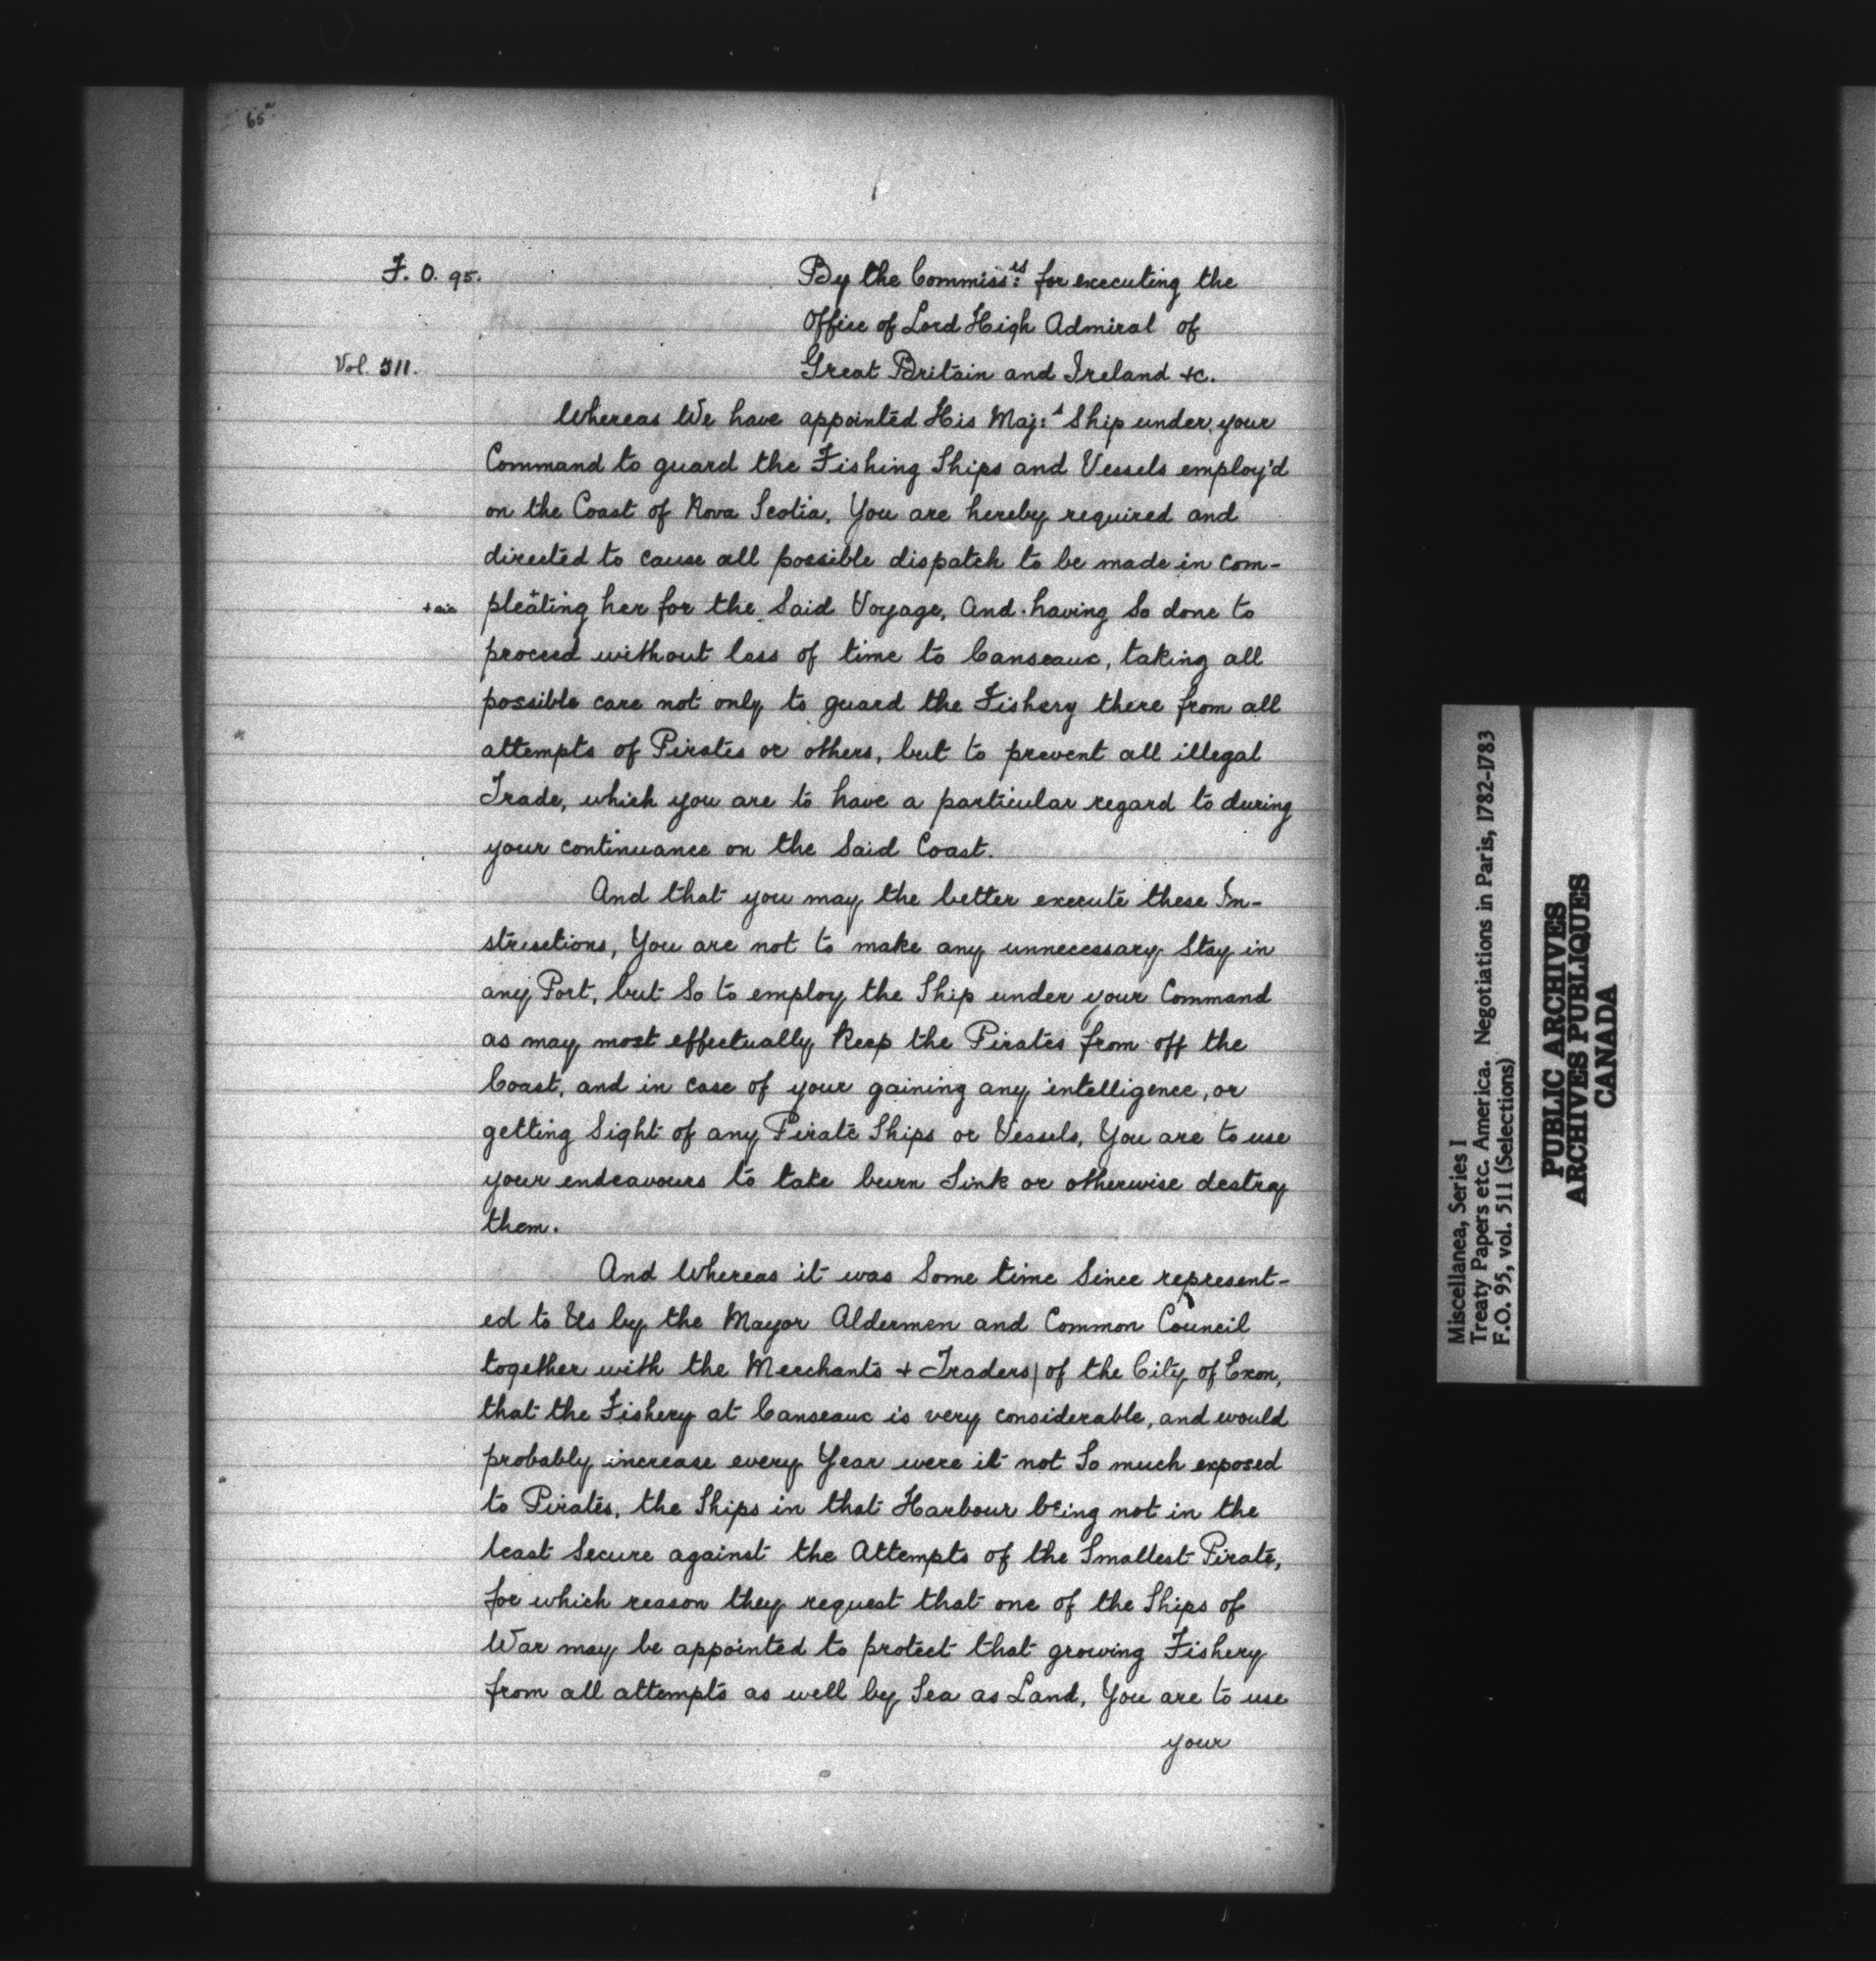 65
F. O. 95.
Vol. 511.
By the Commiss:rs for executing the
Office of Lord High Admiral of
Great Britain and Ireland &c.
Whereas We have appointed His Maj:s Ship under your
Command to guard the Fishing Ships and Vessels employ'd
on the Coast of Nova Scotia, You are hereby required and
directed to cause all possible dispatch to be made in com-
+ sic pleating her for the Said Voyage, And having So done to
proceed without loss of time to Canseaux, taking all
possible care not only to guard the Fishery there from all
attempts of Pirates or others, but to prevent all illegal
Trade, which you are to have a particular regard to during
your continuance on the Said Coast.
And that you may the better execute these In-
structions, You are not to make any unnecessary Stay in
any Port, but So to employ the Ship under your Command
as may most effectually Keep the Pirates from off the
Coast, and in case of your gaining any intelligence, or
getting Sight of any Pirate Ships or Vessels, You are to use
your endeavours to take burn Sink or otherwise destroy
them.
And Whereas it was Some time Since represent-
ed to Us by the Mayor Aldermen and Common Council
together with the Merchants + Traders of the City of Exon,
that the Fishery at Canseaux is very considerable, and would
probably increase every Year were it not So much exposed
to Pirates, the Ships in that Harbour being not in the
least Secure against the Attempts of the Smallest Pirate,
for which reason they request that one of the Ships of
War may be appointed to protect that growing Fishery
from all attempts as well by Sea as Land, You are to use
your
Miscellanea, Series I
Treaty Papers etc. America. Negotiations in Paris, 1782-1783
F.O. 95, vol. 511 (Selections)
PUBLIC ARCHIVES
ARCHIVES PUBLIQUES
CANADA